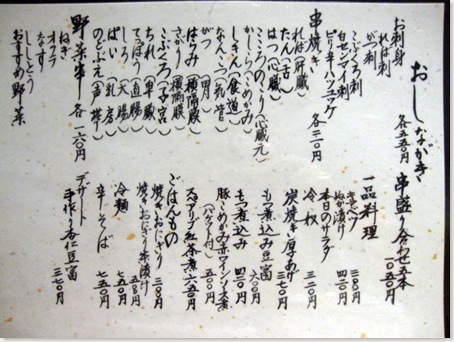 おしながき
お刺身 各五五〇円
れば刺
がつ刺
こぶくろ刺
白センマイ刺
ピリ辛ハツユッケ
串焼き 各二一〇円
ればー(肝臓)
たん(舌)
はつ(心臓)
こころのこり(心臓元)
かしら(こめかみ)
しきん(食道)
なんこつ(気管)
がつ(胃)
はらみ(横隔膜)
さがり(横隔膜)
こぶくろ(子宮)
ちれ(脾臓)
てっぽう(直腸)
しろ(大腸)
ぱい(乳房)
のどぶえ(声帯)
野菜串 各一六〇円
ねぎ
オクラ
なす
ししとう
おすすめ野菜
串盛り合わせ五本 一〇五〇円
一品料理
キャベツ 三一〇円
ぬか漬け 四二〇円
本日のサラダ
冷奴 三二〇円
炭焼き厚あげ 三七〇円
もつ煮込み豆富 六〇〇円
もつ煮込み 四二〇円
豚こめかみ赤ワインソース煮
(バケット付) 五〇〇円
スペアリブ紅茶煮 六五〇円
ごはんもの
焼きおにぎり 三一〇円
焼きおにぎり茶漬け 五二〇円
冷麺 七五〇円
辛そば 七五〇円
デザート
手作り杏仁豆富 三七〇円